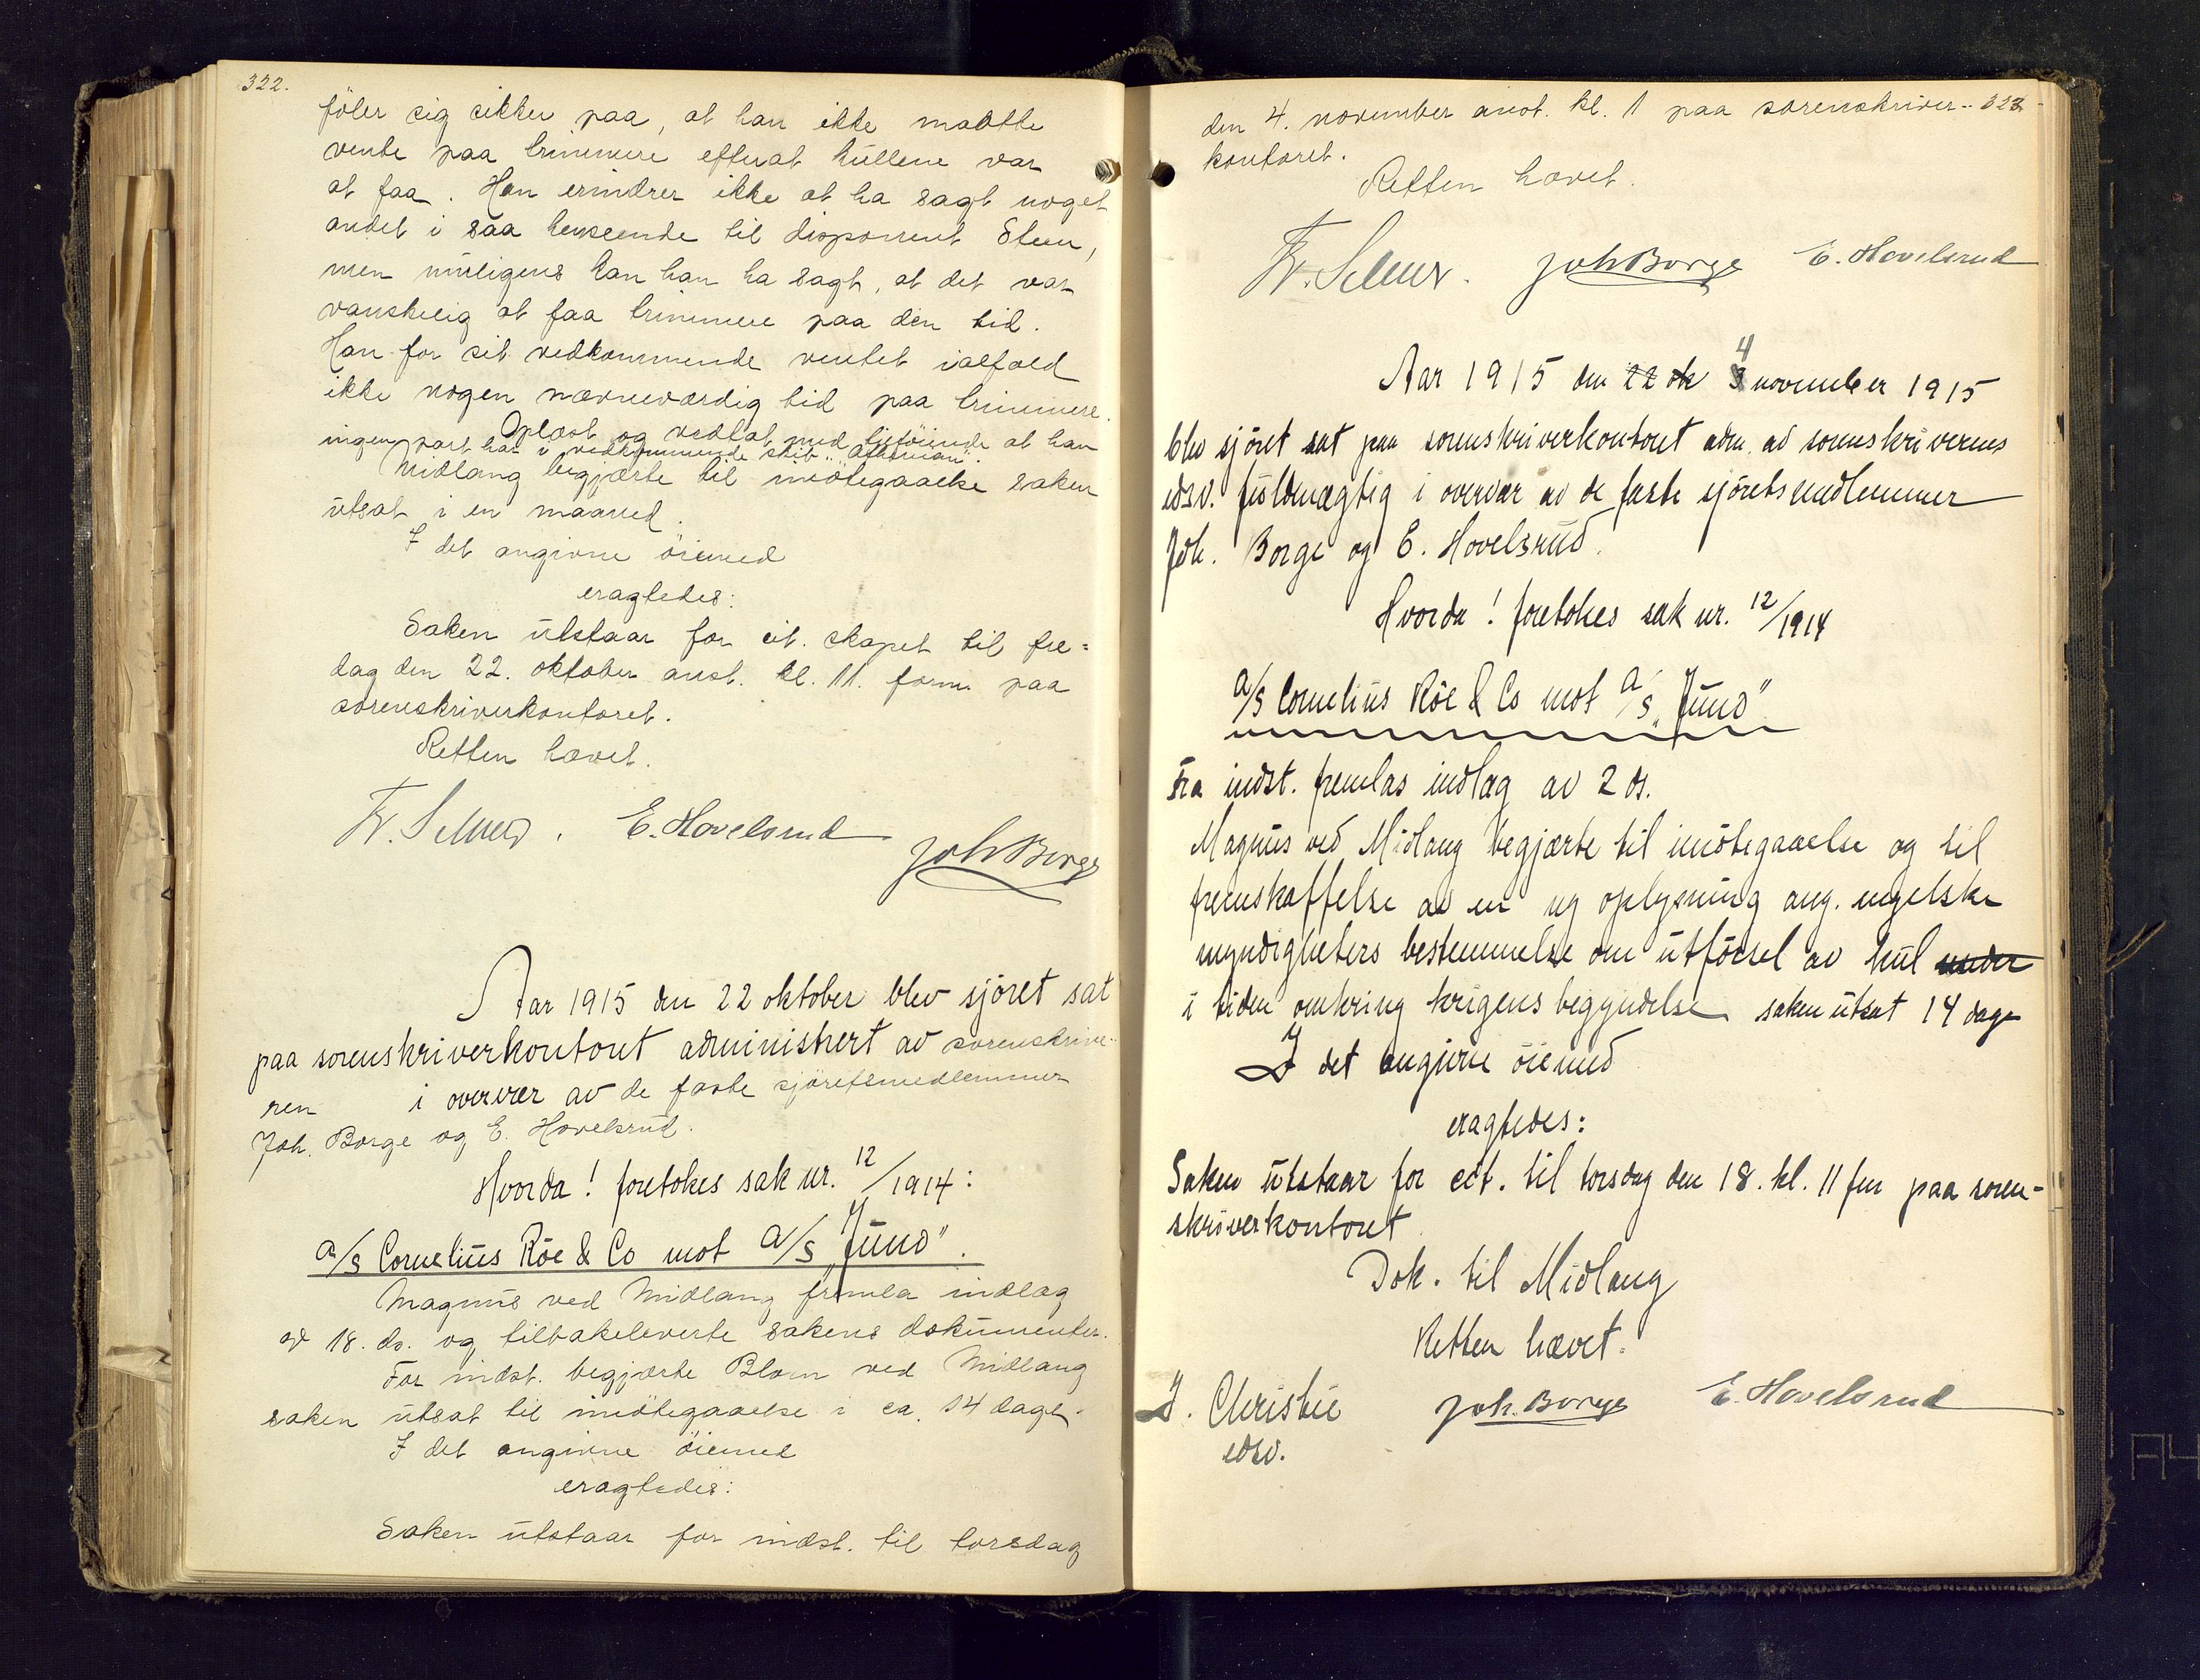 322.
föler sig sikker paa, at han ikke maatte
vente paa trimmere efterat kullene var
at faa. Han erindrer ikke at ha sagt noget
andet i saa henseende til disponent Steen,
men muligens kan han ha sagt, at det var
vanskelig at faa trimmere paa den tid.
Han for sit vedkommende ventet ialfald
ikke nogen nævneværdig tid paa trimmere.
Oplæst og vedtat med tilföiende at han
ingen part har i vedkommende skib
Midlang begjærte til imötegaaelse saken
utsat i en maaned.
I det angivne öiemed
eragtedes:
Saken utstaar for cit. skapet til fre=
dag den 22. oktober anst. kl. 11. form. paa
sorenskriverkontoret.
Retten hævet.
E. Hovelsrud
Joh Borge
Aar 1915 den 22 oktober blev sjöret sat
paa sorenskriverkontoret administrert av sorenskrive-
ren i overvær av de faste sjöretsmedlemmer
Joh. Borge og E. Hovelsrud.
Hvorda! foretokes sak nr. 12/1914:
A/S Cornelius Röe & Co mot A/S „Juno".
Magnus ved Midlang fremla indlæg
av 18. ds. og tilbakeleverte sakens dokumenter.
For indst. begjærte Blom ved Midlang
saken utsat til imötegaaelse i ca. 14 dage.
I det angivne öiemed
eragtedes:
Saken utstaar for indst. til torsdag
323
den 4. november anst. kl. 1 paa sorenskriver-
kontoret.
Retten hævet.
Joh Borge E. Hovelsrud
Aar 1915 den 22 ok 4 november 1915
blev sjöret sat paa sorenskriverkontoret adm. av sorenskriverens
edsv. fuldmægtig i overvær av de faste sjöretsmedlemmer
Joh. Borge og E. Hovelsrud.
Hvorda! foretokes sak nr. 12/1914
A/S Cornelius Röe & Co mot A/S „Juno"
Fra indst. fremlas indlæg av 2 ds.
Magnus ved Midlang begjærte til imötegaaelse og til
fremskaffelse av en ny oplysning ang. engelske
myndigheters bestemmelse om utförsel av kul under
i tiden omkring krigens begyndelse saken utsat 14 dage
I det angivne öiemed
eragtedes:
Saken utstaar for cit. til torsdag den 18. kl. 11 fm paa soren-
skriverkontoret
Dok. til Midlang
Retten hævet.
J. Christie Joh. Borge E. Hovelsrud
edsv.